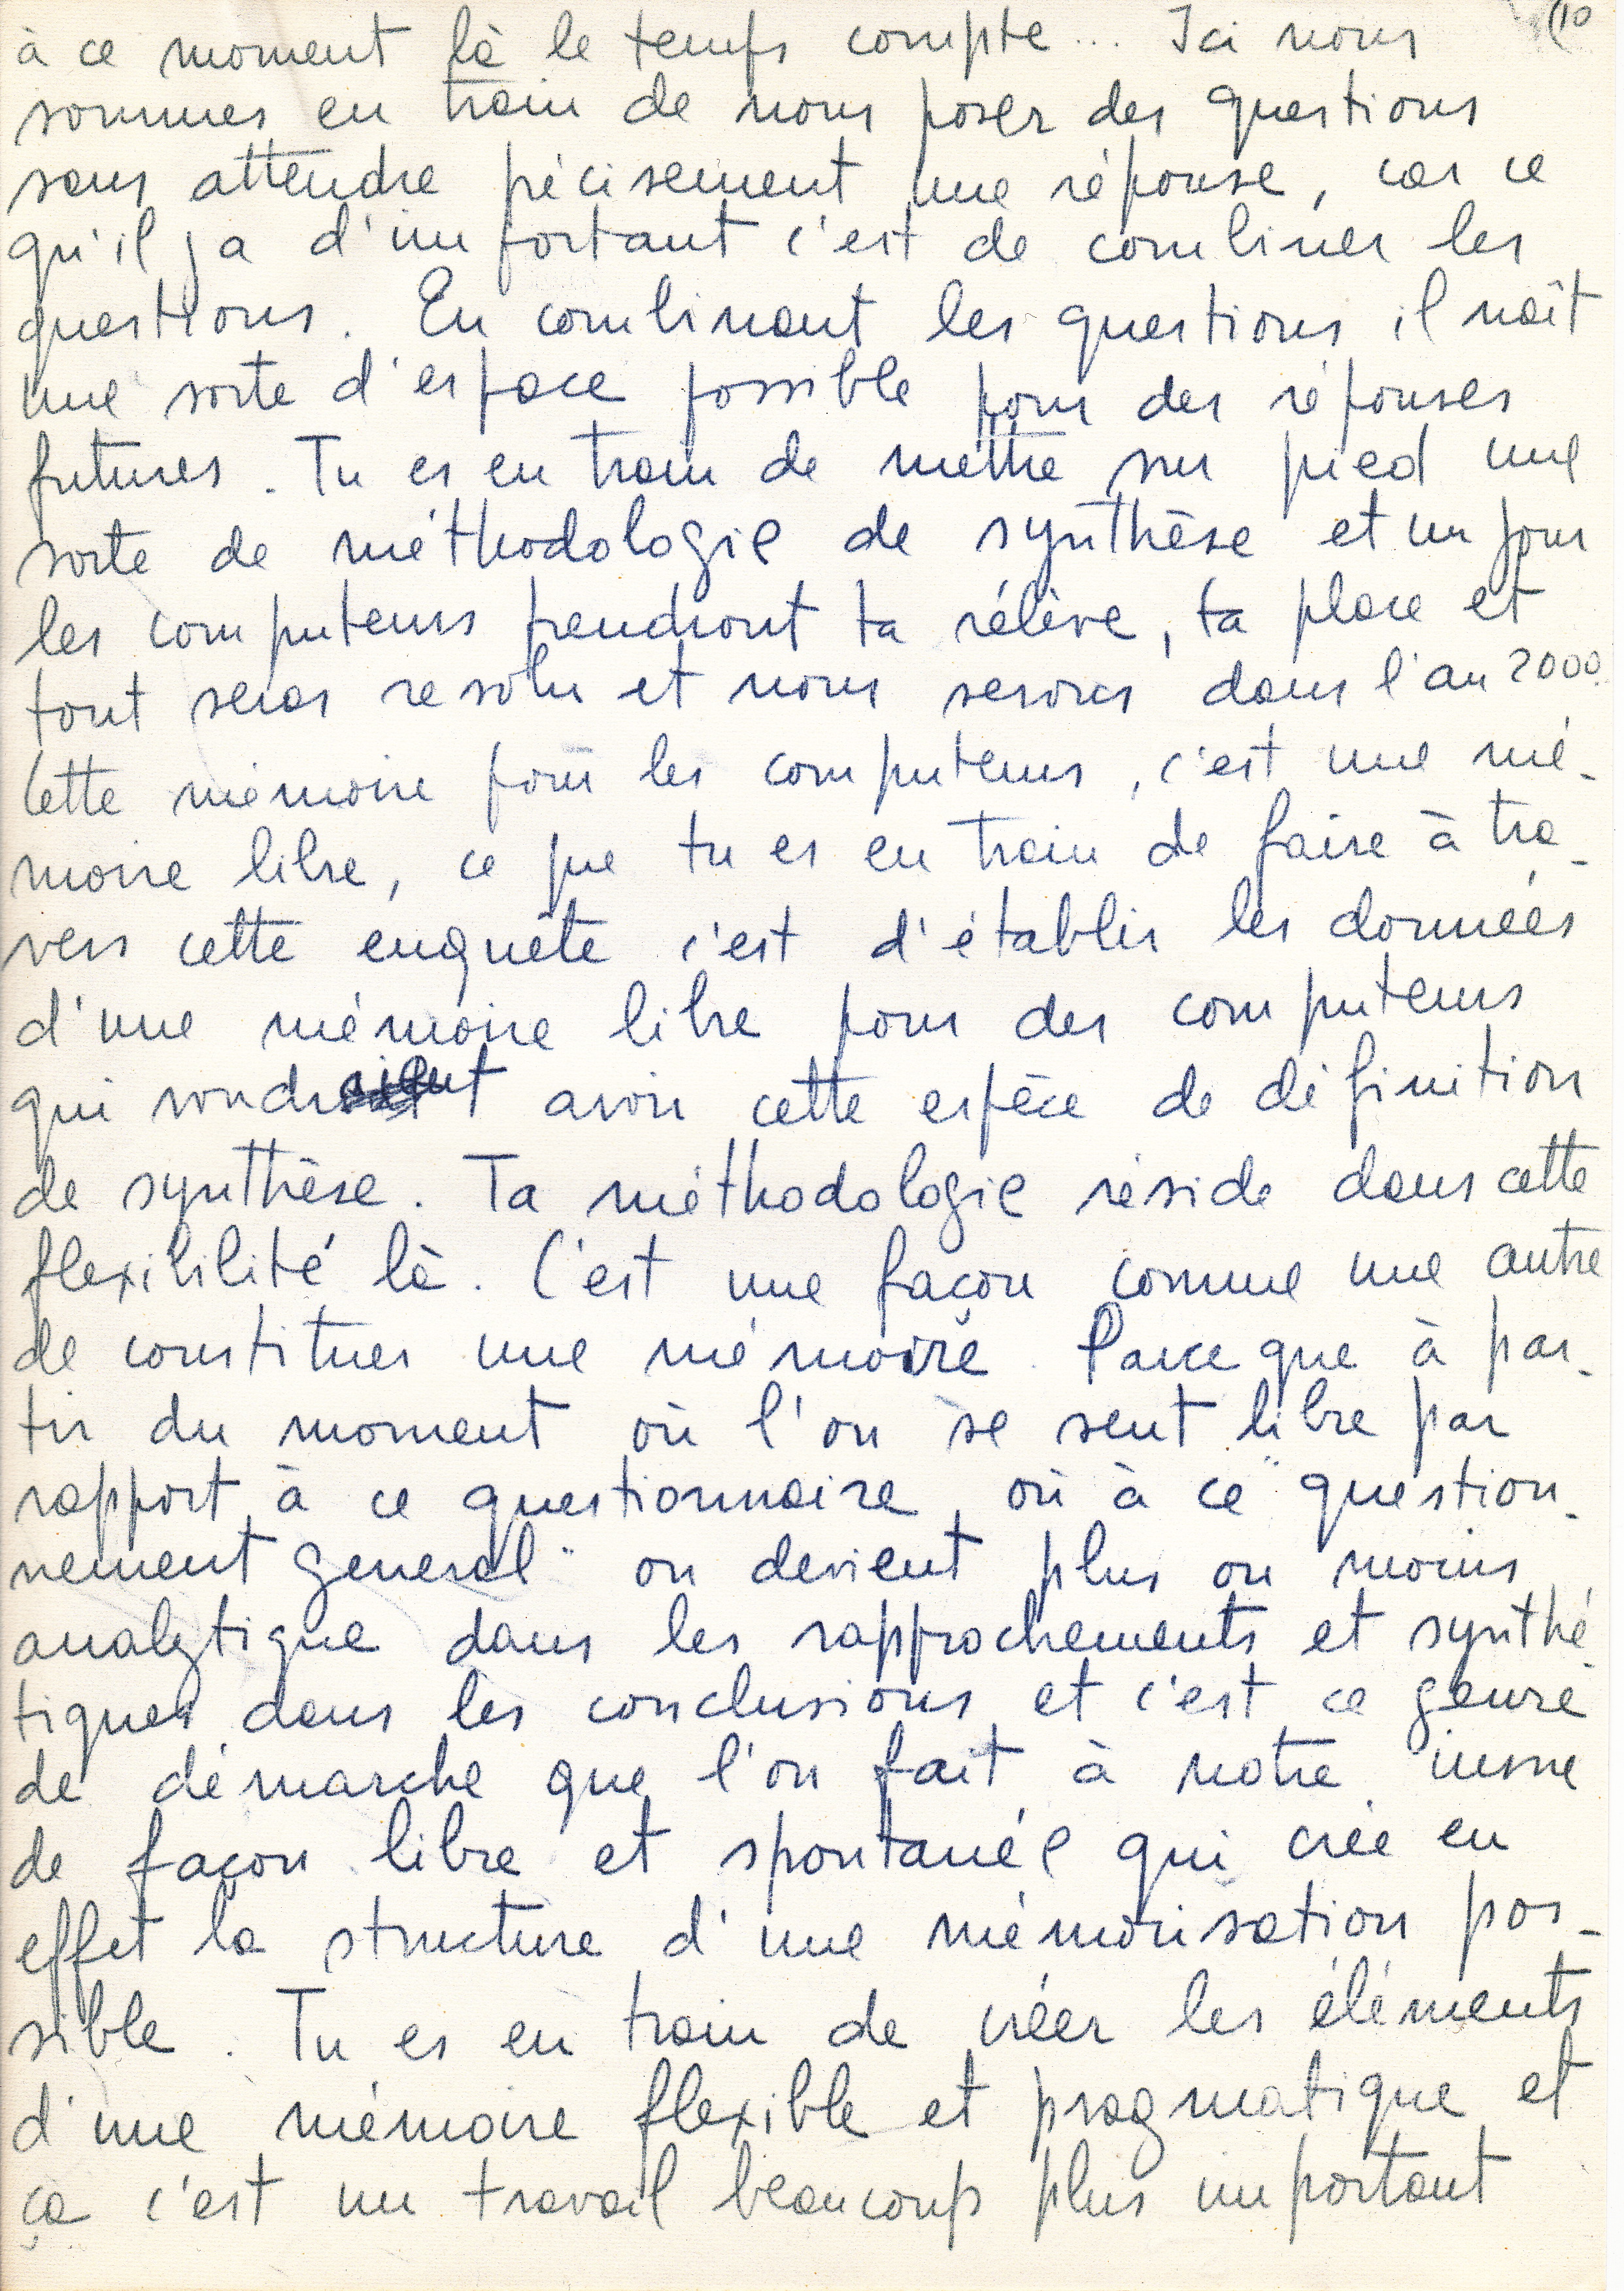 (10
à ce moment là le temps compte... Ici nous
sommes en train de nous poser des questions
sans attendre précisement une réponse, car ce
qu'il y a d'important c'est de combiner les
questions. En combinant les questions il naît
une sorte d'espace possible pour des réponses
futures. Tu es en train de mettre sur pied une
sorte de méthodologie de synthèse et un jour
les computeurs prendront ta rélève, ta place et
tout seras resolu et nous serons dans l'an 2000.
Cette mémoire pour les computeurs, c'est une mé-
moire libre, ce que tu es en train de faire à tra-
vers cette enquête c'est d'établir les données
d'une mémoire libre pour des computeurs
qui voudraient avoir cette espèce de définition
de synthèse. Ta méthodologie réside dans cette
flexibilité là. C'est une façon comme une autre
de constituer une mémoire. Parce que à par-
tir du moment où l'on se sent libre par
rapport à ce questionnaire, où à ce "question-
nement general" on devient plus ou moins
analytique dans les rapprochements et synthé
tiques dans les conclusions et c'est ce genre
de démarche que l'on fait à notre insue
de façon libre et spontanée qui crée en
effet la structure d'une mémorisation pos-
sible. Tu es en train de créer les éléments
d'une mémoire flexible et pragmatique et
ça c'est un travail beaucoup plus important